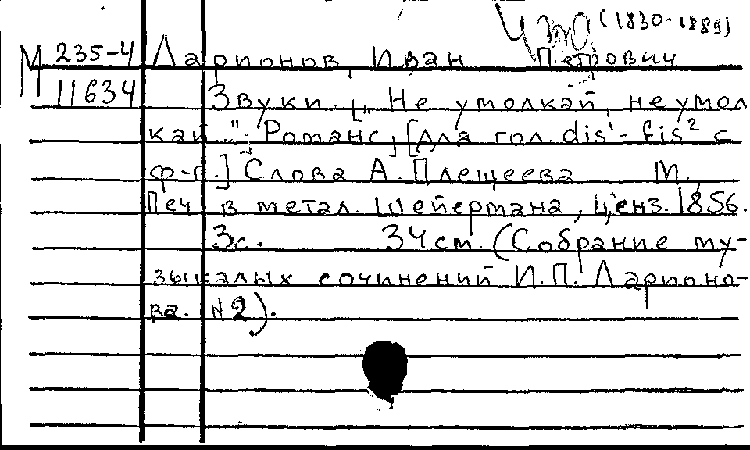 (1830-1889)
М 235-4 Ларионов, Иван Петрович
11634 Звуки. [„Не умолкай, неумол
кай": Романс, [для гол. dis¹-fis² с
ф-п.] Слова А. Плещеева М.,
Печ. в метал. Шейермана, ценз. 1856.
3с. 34см. (Собрание му-
зыкалых сочинений И.П. Ларионо-
ва. №2).